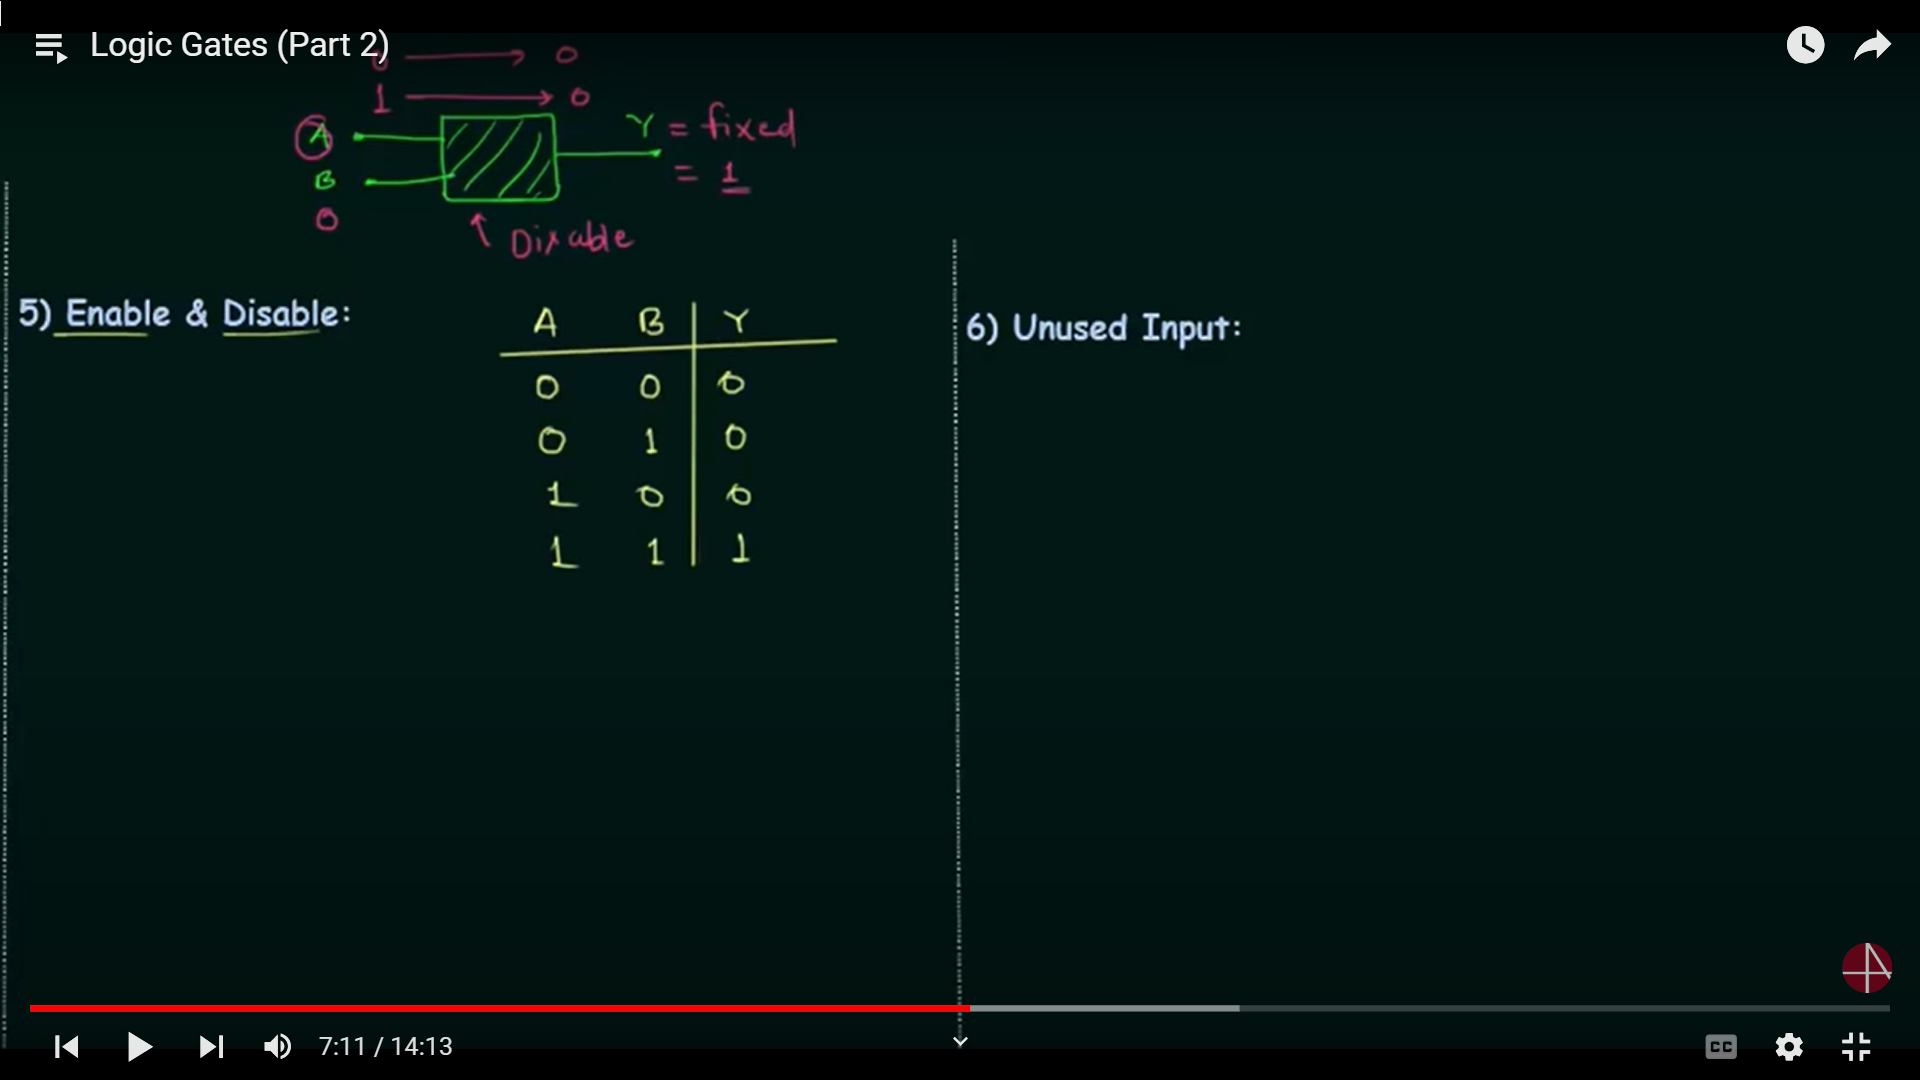 Logic Gates (Part 2)
0 → 0
1 → 0
A Y = fixed
B = 1
0 ↑ Disable
5) Enable & Disable:
A B Y
0 0 0
0 1 0
1 0 0
1 1 1
6) Unused Input:
7:11 / 14:13
CC